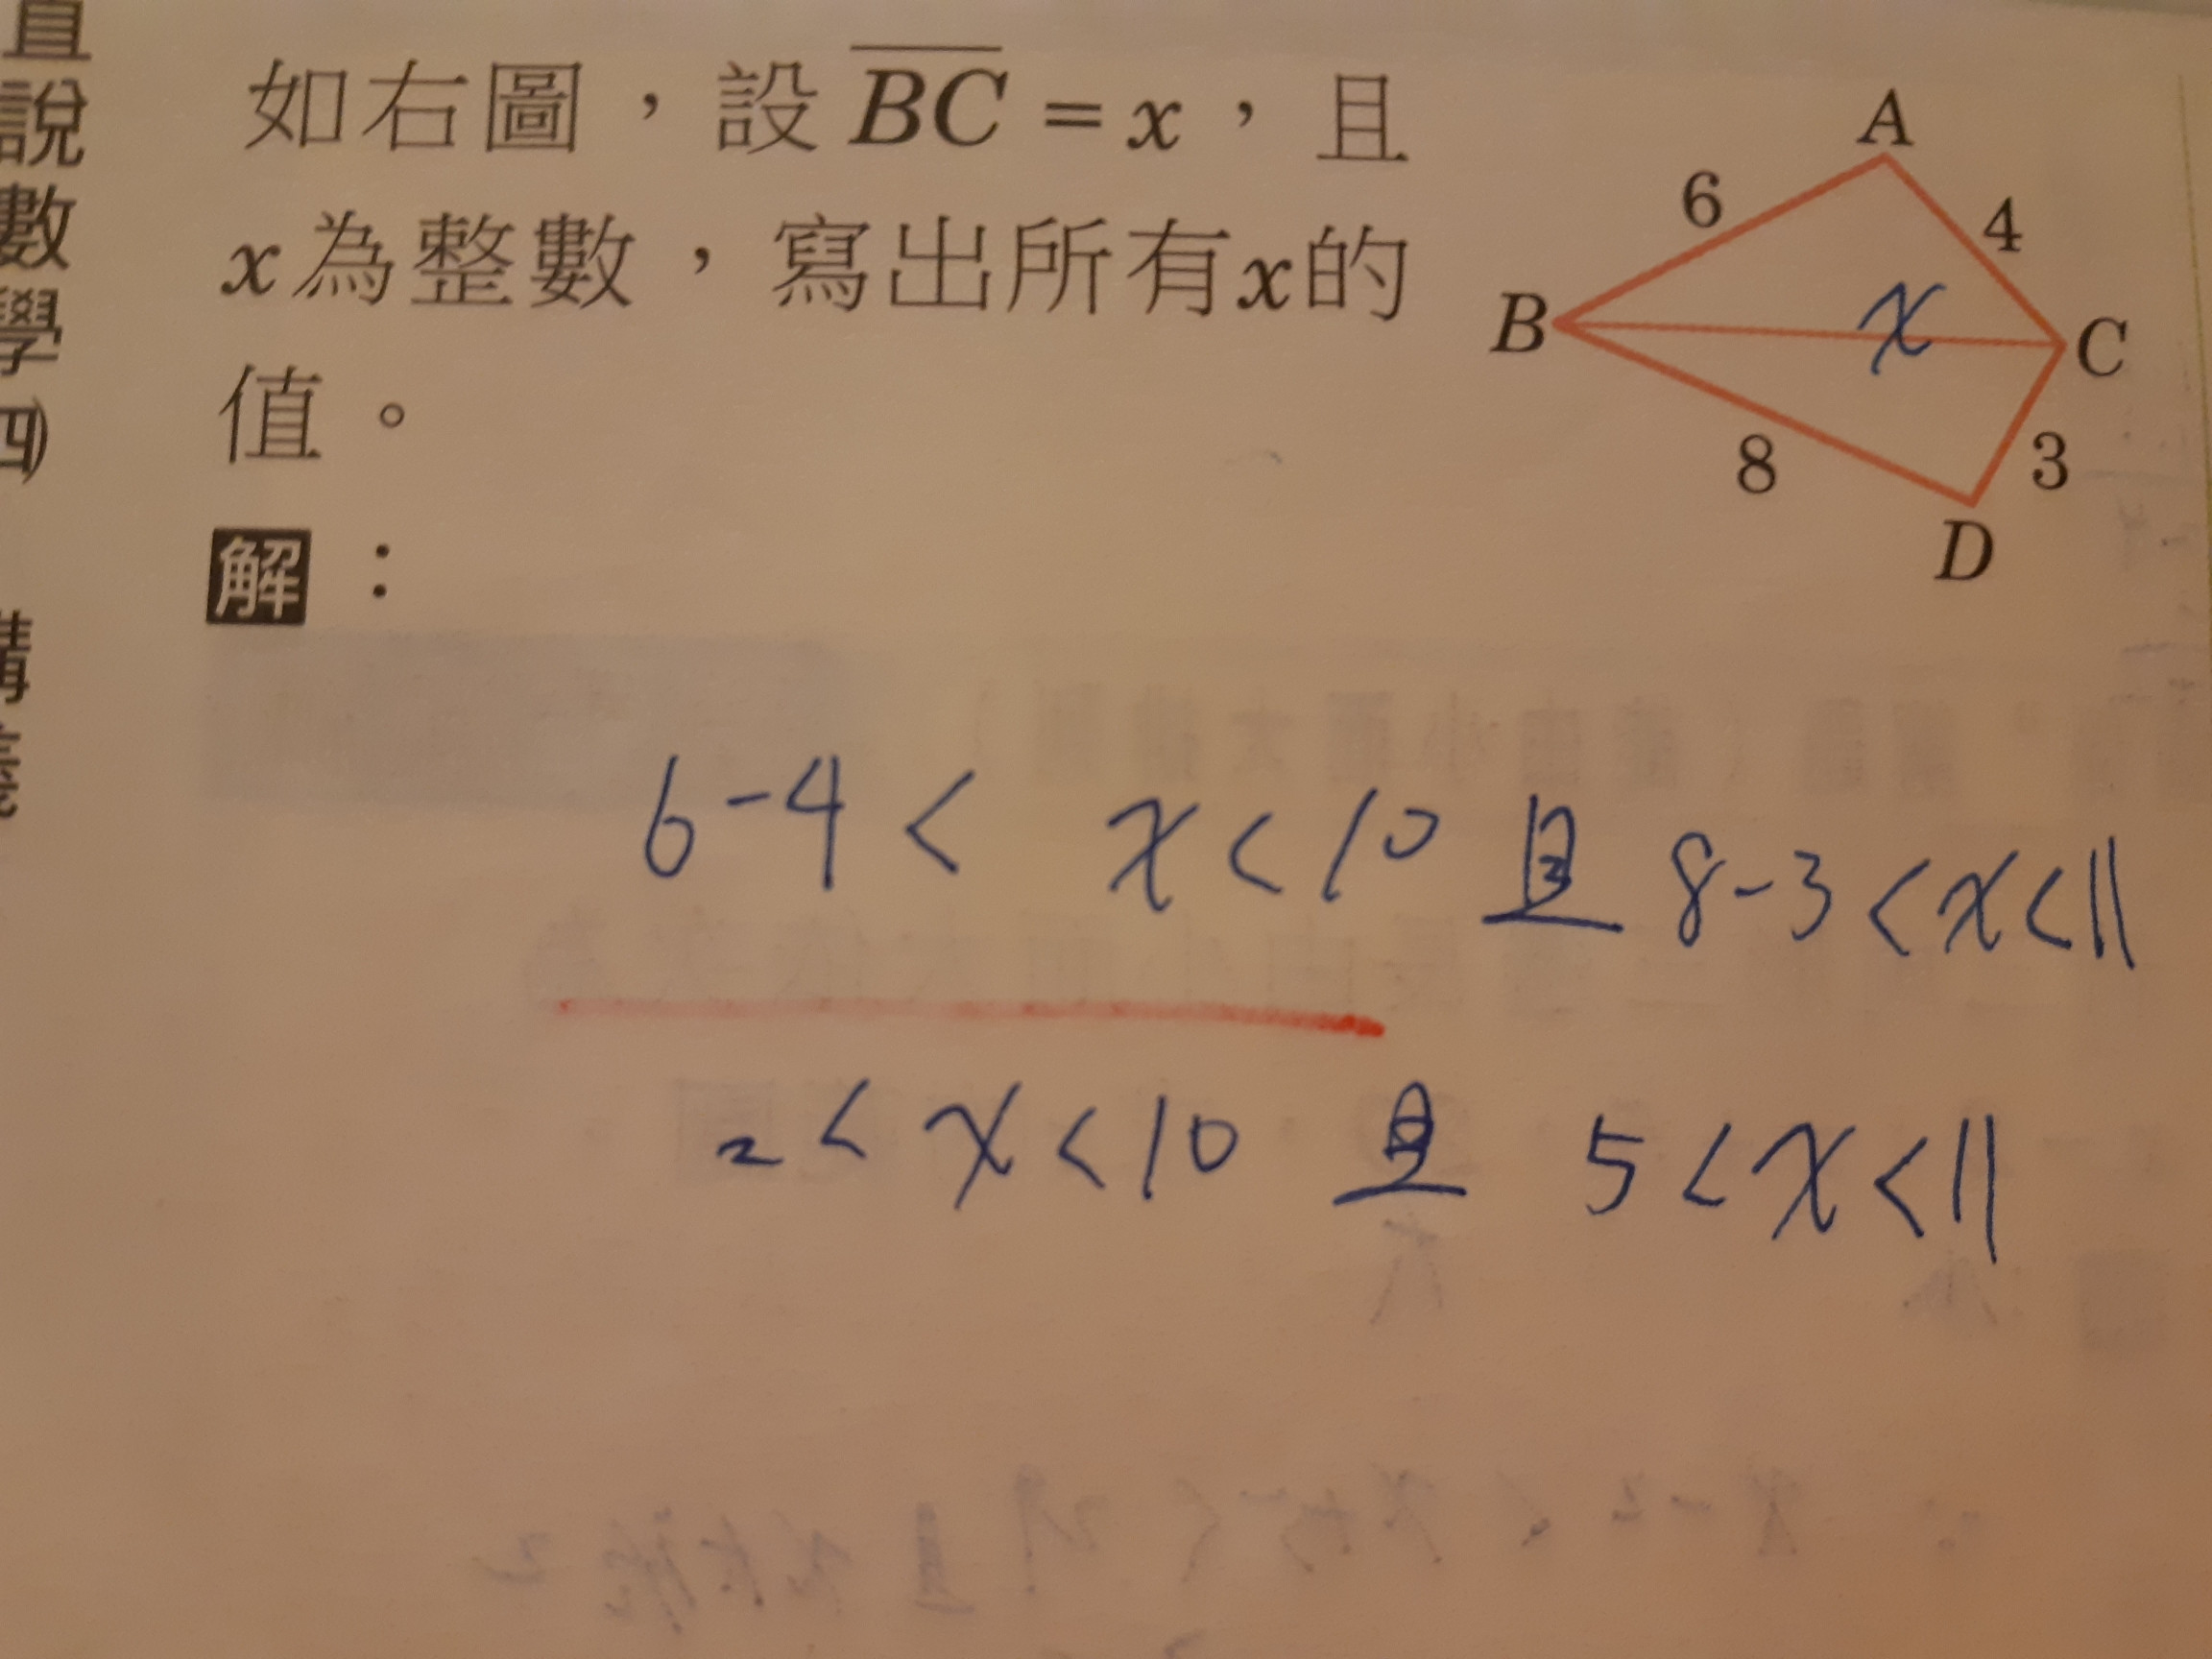 直說數學(四) 講義
如右圖，設BC=x，且
x為整數，寫出所有x的
值。
解：
A
6
4
B
x
C
8
3
D
6-4< x<10 且 8-3<x<11
2<x<10 且 5<x<11